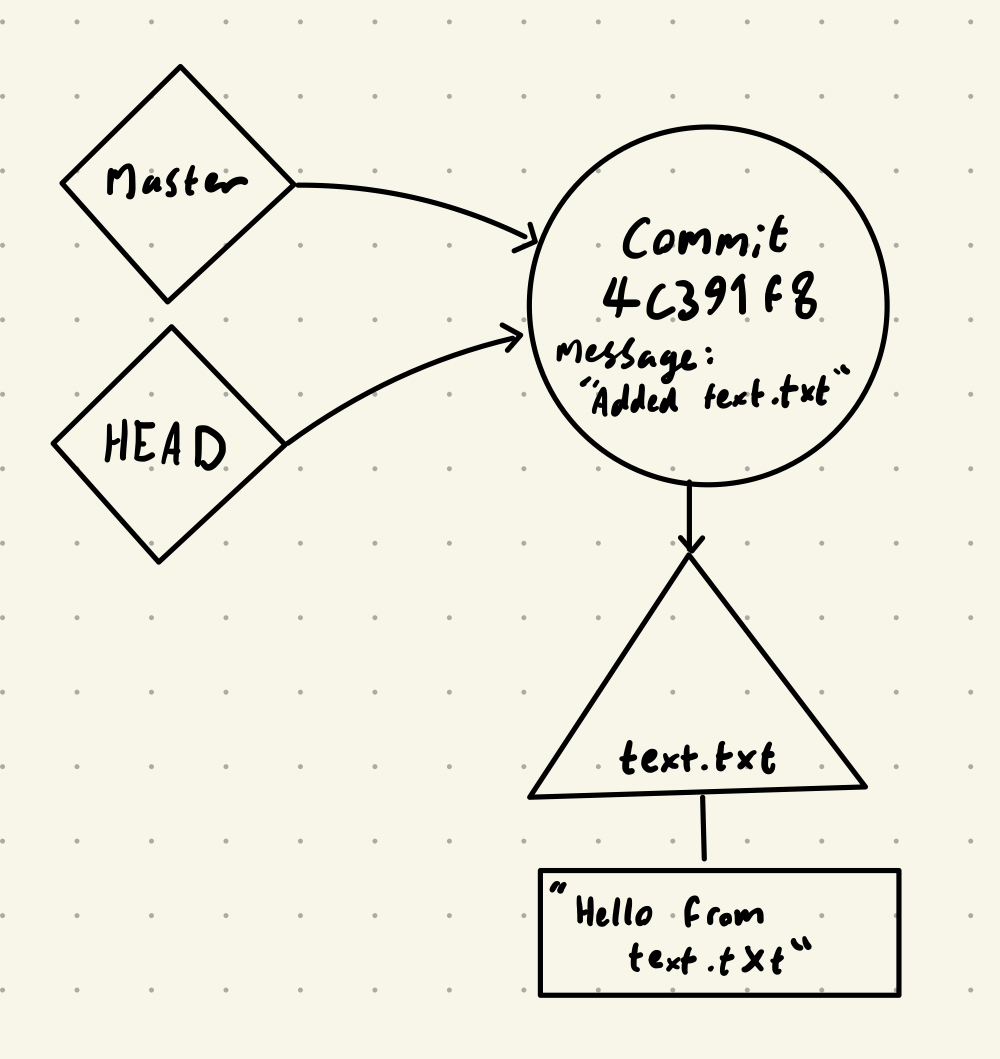 Master
HEAD
Commit
4C391F8
Message:
"Added text.txt"
text.txt
"Hello from
text.txt"